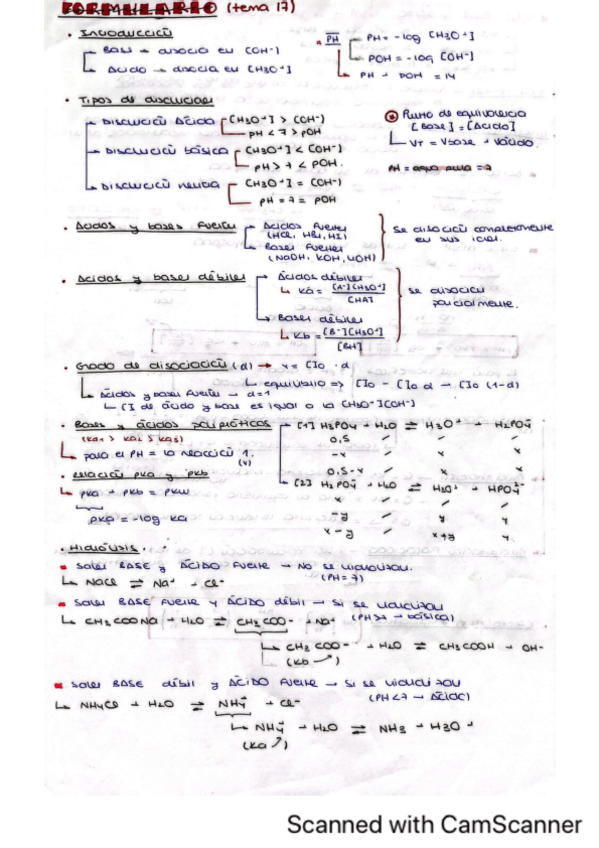 FORMULARIO (tema 17)
• Introducción
Base → disocia en [OH-]
Ácido → disocia en [H3O+]
• PH
PH = -log [H3O+]
POH = -log [OH-]
PH + POH = 14
• Tipos de disoluciones
Disolución Ácida [H3O+] > [OH-]
pH < 7 > pOH
Disolución básica [H3O+] < [OH-]
pH > 7 < POH.
Disolución neutra [H3O+] = [OH-]
pH = 7 = POH
Punto de equivalencia
[Base] = [Ácido]
VT = Vbase + Vácido.
PH = agua pura = 7
• Ácidos y bases fuertes
Ácidos fuertes
(HCl, HBr, HI)
Bases fuertes
(NaOH, KOH, LiOH)
Se disocian completamente
en sus iones.
• Ácidos y bases débiles
Ácidos débiles
Ka = [A-][H3O+]
[HA]
Bases débiles
Kb = [B-][H3O+]
[BH]
se disocian
parcialmente.
• Grado de disociación (α) → x = []o · α
equilibrio => []o - []o α → []o (1-α)
Ácidos y bases fuertes → α=1
[] de ácido y base es igual a la [H3O+][OH-]
• Bases y ácidos polipróticos
(Ka1 > Ka2 > Ka3)
para el PH = la reacción 1.
(x)
[1] H3PO4 + H2O ⇌ H3O+ + H2PO4-
0,5 / / /
-x / x x
0,5-x / x x
[2] H2PO4- + H2O ⇌ H3O+ + HPO4-
x / x /
-y / y y
x-y / x+y y
• Relación pKa y pKb
pKa + pKb = pKw
pKa = -log Ka
• Hidrólisis.
Sales BASE y ÁCIDO Fuerte → No se hidrolizan.
(PH=7)
NaCl ⇌ Na+ + Cl-
Sales BASE Fuerte y ÁCIDO débil → Si se hidrolizan
(PH>7 → básica)
CH3COONa + H2O ⇌ CH3COO- + Na+
CH3COO- + H2O ⇌ CH3COOH + OH-
(Kb)
Sales BASE débil y ÁCIDO Fuerte → Si se hidrolizan
(PH<7 → Ácida)
NH4Cl + H2O ⇌ NH4+ + Cl-
NH4+ + H2O ⇌ NH3 + H3O+
(Ka)
Scanned with CamScanner